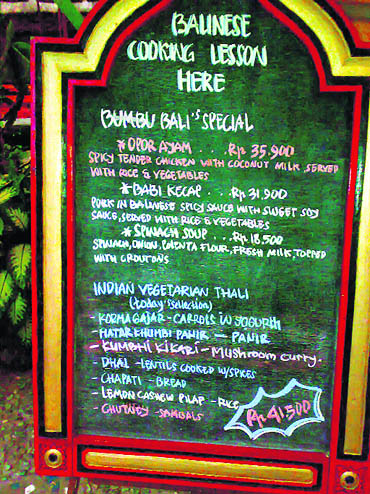 BALINESE
COOKING LESSON
HERE
BUMBU BALI'S SPECIAL
* OPOR AYAM . . . Rp 35.900
SPICY TENDER CHICKEN WITH COCONUT MILK, SERVED
WITH RICE & VEGETABLES
* BABI KECAP . . . Rp 31.900
PORK IN BALINESE SPICY SAUCE WITH SWEET SOY
SAUCE, SERVED WITH RICE & VEGETABLES
* SPINACH SOUP . . . Rp 18.500
SPINACH, ONION, POLENTA FLOUR, FRESH MILK, TOPPED
WITH CROUTONS
INDIAN VEGETARIAN THALI
(today selection)
- KORMA GAJAR - CARROLS W YOGURTH
- MATAR KHUMBI PANIR - PANIR
- KUMBHI KI KARI - Mushroom curry.
- DHAL - LENTILS COOKED W/SPICES
- CHAPATI - BREAD
- LEMON CASHEW PILAP - RICE
- CHUTNEY - SAMBALS
Rp 41,500